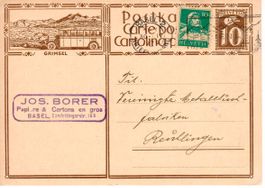 Postkarte
Carte postale
Cartolina
GRIMSEL
HELVETIA
10
10
JOS. BORER
Papiere & Cartons en gros
BASEL,
Tit.
Vereinigte Metalltuch-
fabriken
Reutlingen